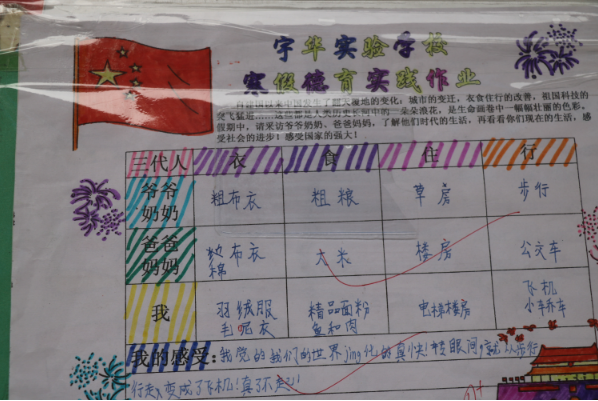 宇华实验学校
寒假德育实践作业
自建国以来中国发生了翻天覆地的变化：城市的变迁，衣食住行的改善，祖国科技的
突飞猛进……这些都是人类历史长河中的一朵朵浪花，是生命画卷中一幅幅壮丽的色彩。
假期中，请采访爷爷奶奶、爸爸妈妈，了解他们时代的生活，再看看你们现在的生活，感
受社会的进步！感受国家的强大！
三代人 衣 食 住 行
爷爷奶奶 粗布衣 粗粮 草房 步行
爸爸妈妈 棉布衣 大米 楼房 公交车
我 羽绒服 毛呢衣 精品面粉 鱼和肉 电梯楼房 飞机 小车轿车
我的感受：我觉的我们的世界jing化的真快！转眼间就从步行
行走变成了飞机！真了不起